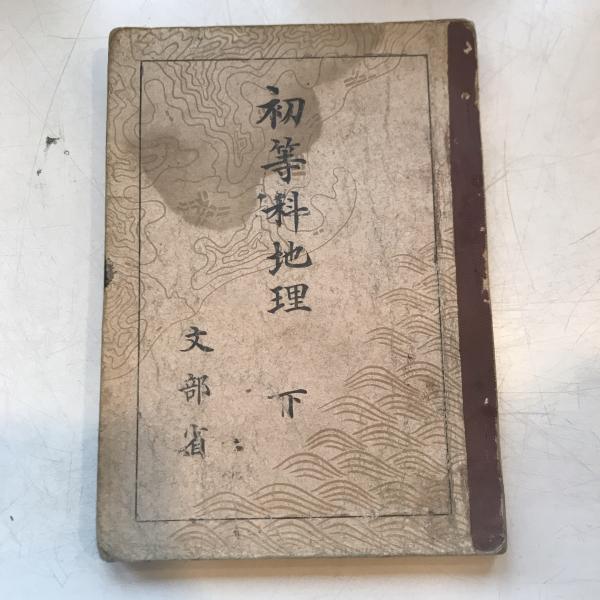 初等科地理 下
文部省